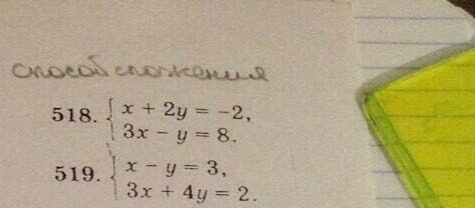 способ сложения
518. { x + 2y = -2,
3x - y = 8.
519. { x - y = 3,
3x + 4y = 2.